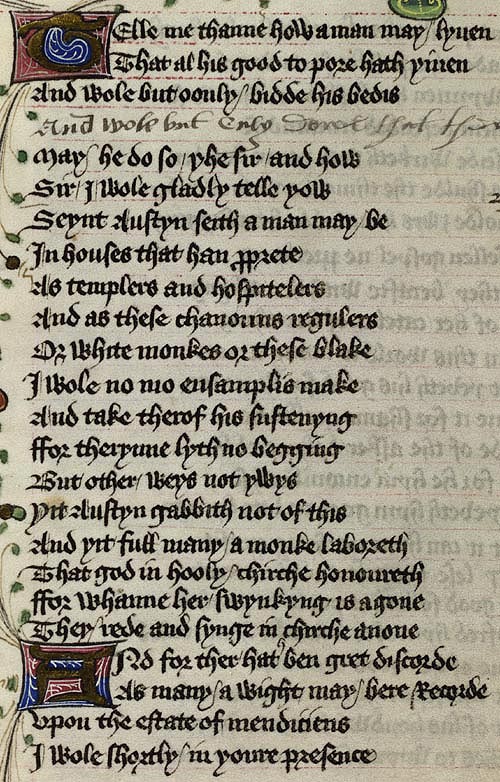 Telle me thanne how a man may / lyuen
That al his good to pore hath yiuen
And wole but oonly / bidde his bedis
And wole but only
May / he do so / yhe sir / and how
Sir / I wole gladly telle yow
Seynt Austyn seith a man may be
In houses that han pprete
As templers and hospitelers
And as these chanouns regulers
Or white monkes or these blake
I wole no mo ensamplis make
And take therof his sustenyng
ffor therynne lyth no begging
But other / weys not ywys
Yit Austyn gabbith not of this
And yit full many / a monke laboreth
That god in hooly / chirche honoureth
ffor whanne her / swynkyng is agone
They / rede and synge in chirche anone
And for ther hat ben gret discorde
As many / a wight may / bere Recorde
Vpon the estate of mendiciens
I wole shortly / in youre presence